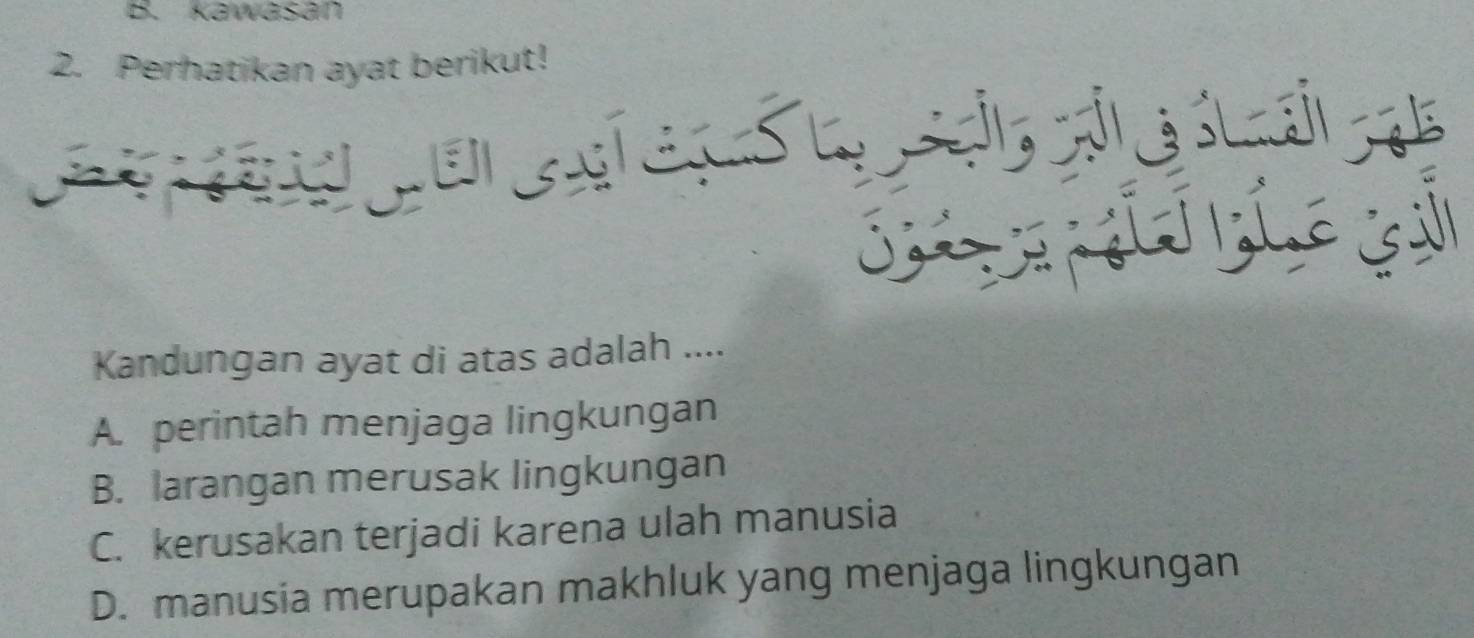 B. kawasan
2. Perhatikan ayat berikut!
ظَهَرَ الْفَسَادُ فِى الْبَرِّ وَالْبَحْرِ بِمَا كَسَبَتْ اَيْدِى النَّاسِ لِيُذِيْقَهُمْ بَعْضَ
الَّذِيْ عَمِلُوْا لَعَلَّهُمْ يَرْجِعُوْنَ
Kandungan ayat di atas adalah ....
A. perintah menjaga lingkungan
B. larangan merusak lingkungan
C. kerusakan terjadi karena ulah manusia
D. manusia merupakan makhluk yang menjaga lingkungan